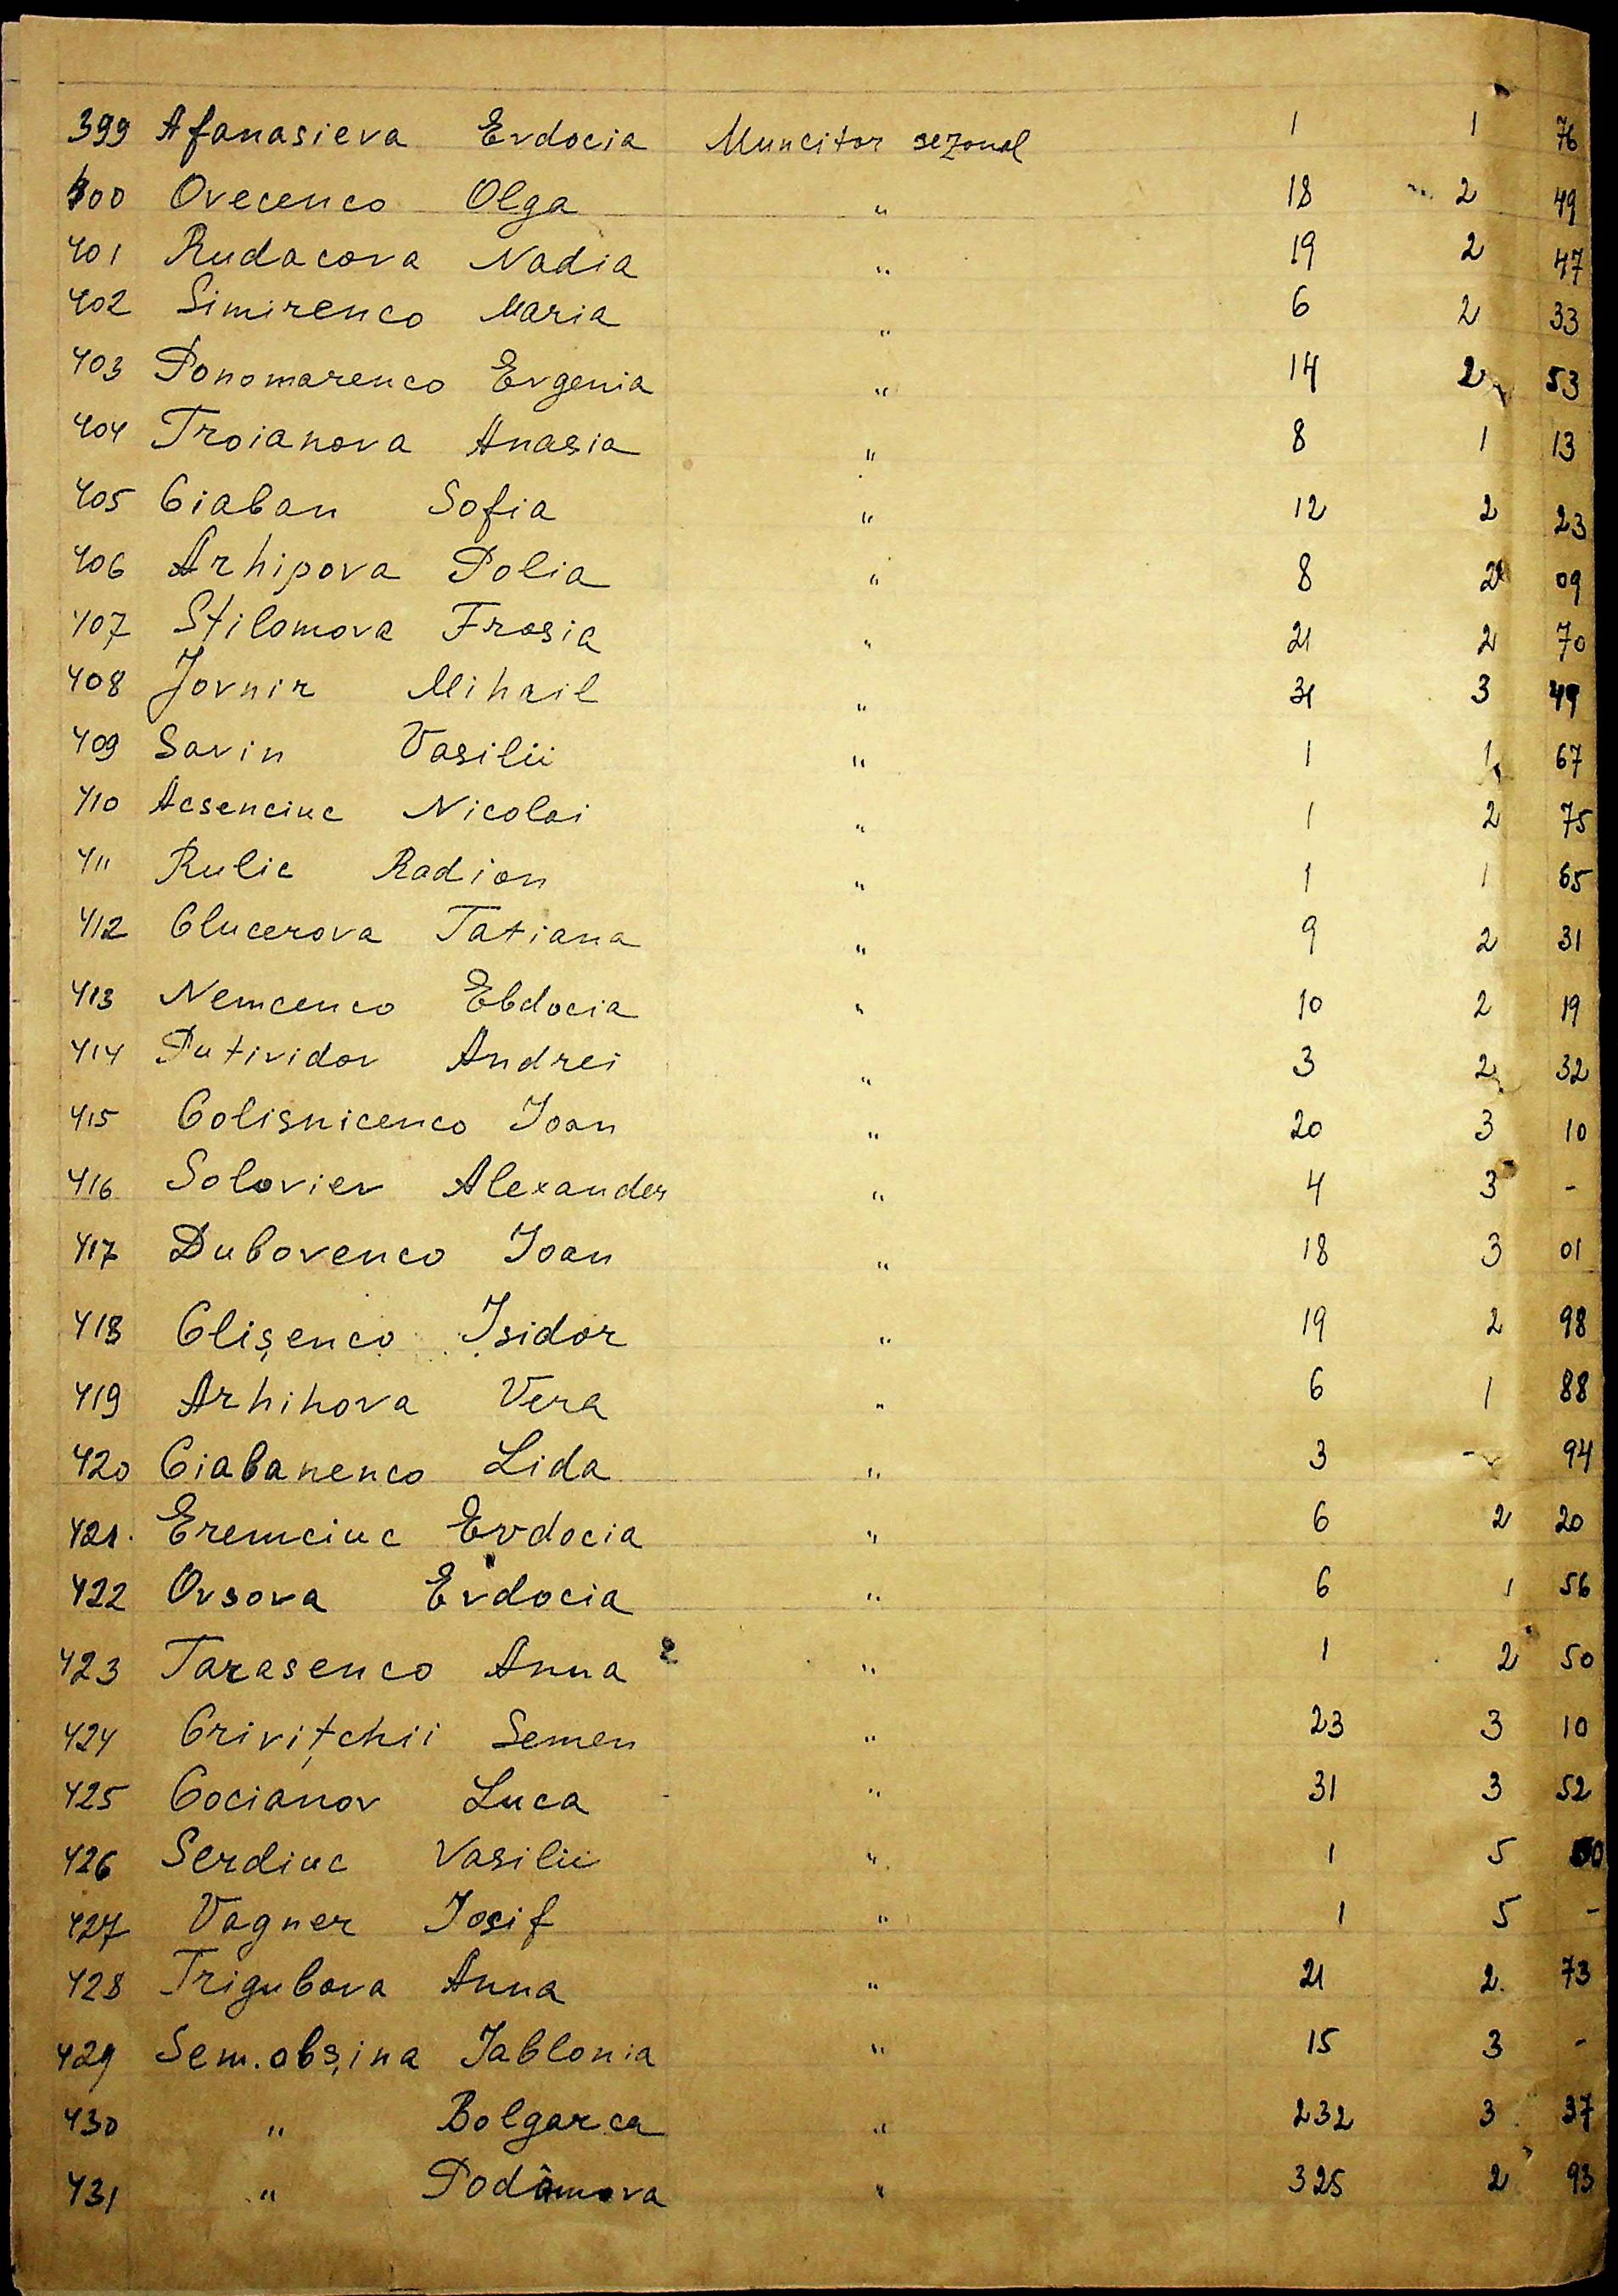 399 Afanasieva Evdocia Muncitor sezonal 1 1 76
400 Ovecenco Olga " 18 2 49
401 Rudacova Nadia " 19 2 47
402 Simirenco Maria " 6 2 33
403 Ponomarenco Evgenia " 14 2 53
404 Troianova Anasia " 8 1 13
405 Ciaban Sofia " 12 2 23
406 Arhipova Polia " 8 2 09
407 Stilomova Frosia " 21 2 70
408 Jovnir Mihail " 31 3 49
409 Savin Vasilii " 1 1 67
410 Acsenciuc Nicolai " 1 2 75
411 Rulic Radion " 1 1 65
412 Clucerova Tatiana " 9 2 31
413 Nemcenco Ebdocia " 10 2 19
414 Putividov Andrei " 3 2 32
415 Colisnicenco Ioan " 20 3 10
416 Soloviev Alexander " 4 3 -
417 Dubovenco Ioan " 18 3 01
418 Clișenco Isidor " 19 2 98
419 Arhihova Vera " 6 1 88
420 Ciabanenco Lida " 3 - 94
421. Eremciuc Evdocia " 6 2 20
422 Ovsova Evdocia " 6 1 56
423 Tarasenco Anna 2 " 1 2 50
424 Crivițchii Semen " 23 3 10
425 Cocianov Luca " 31 3 52
426 Serdiuc Vasilii " 1 5
427 Vagner Iosif " 1 5 -
428 Trigubova Anna " 21 2. 73
429 Sem. obșina Iablonia " 15 3 -
430 " Bolgarca " 232 3 37
431 " Podâmova " 325 2 93